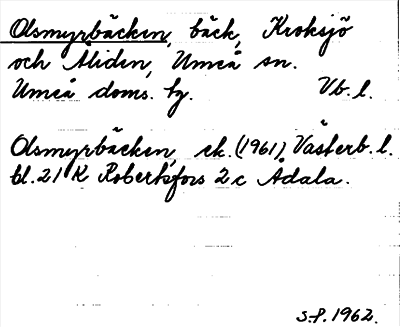 Olsmyrbäcken, bäck, Kroksjö
och Åliden, Umeå sn.
Umeå doms. tg. Vb. l.
Olsmyrbäcken, ek. (1961) Västerb. l.
bl. 21 K Robertsfors 2c Ådala.
S.F. 1962.